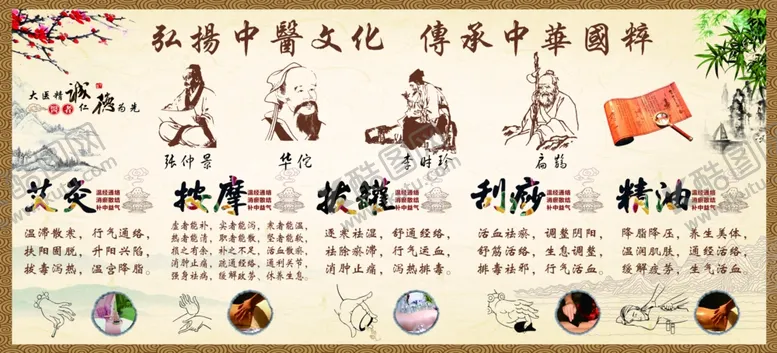 弘揚中醫文化 傳承中華國粹
大医精诚
医者仁德为先
张仲景
华佗
李时珍
扁鹊
艾灸
温经通络
消瘀散结
补中益气
温滞散来，行气通络，
扶阳固脱，升阳兴陷，
拔毒泻热，温宫降脂。
按摩
温经通络
消瘀散结
补中益气
虚者能补，实者能泻，来者能温，
热者能清，职者能散，坚者能软，
损之有余，补之不足，活血散瘀，
消肿止痛，疏通经络，通利关节，
强身祛病，缓解疲劳，休养生息。
拔罐
温经通络
消瘀散结
补中益气
逐来祛湿，舒通经络，
祛除瘀滞，行气运血，
消肿止痛，泻热排毒。
刮痧
温经通络
消瘀散结
补中益气
活血祛瘀，调整阴阳，
舒筋活络，生息调整，
排毒祛邪，行气活血。
精油
温经通络
消瘀散结
补中益气
降脂降压，养生美体，
温润肌肤，通经活络，
缓解疲劳，生气活血。